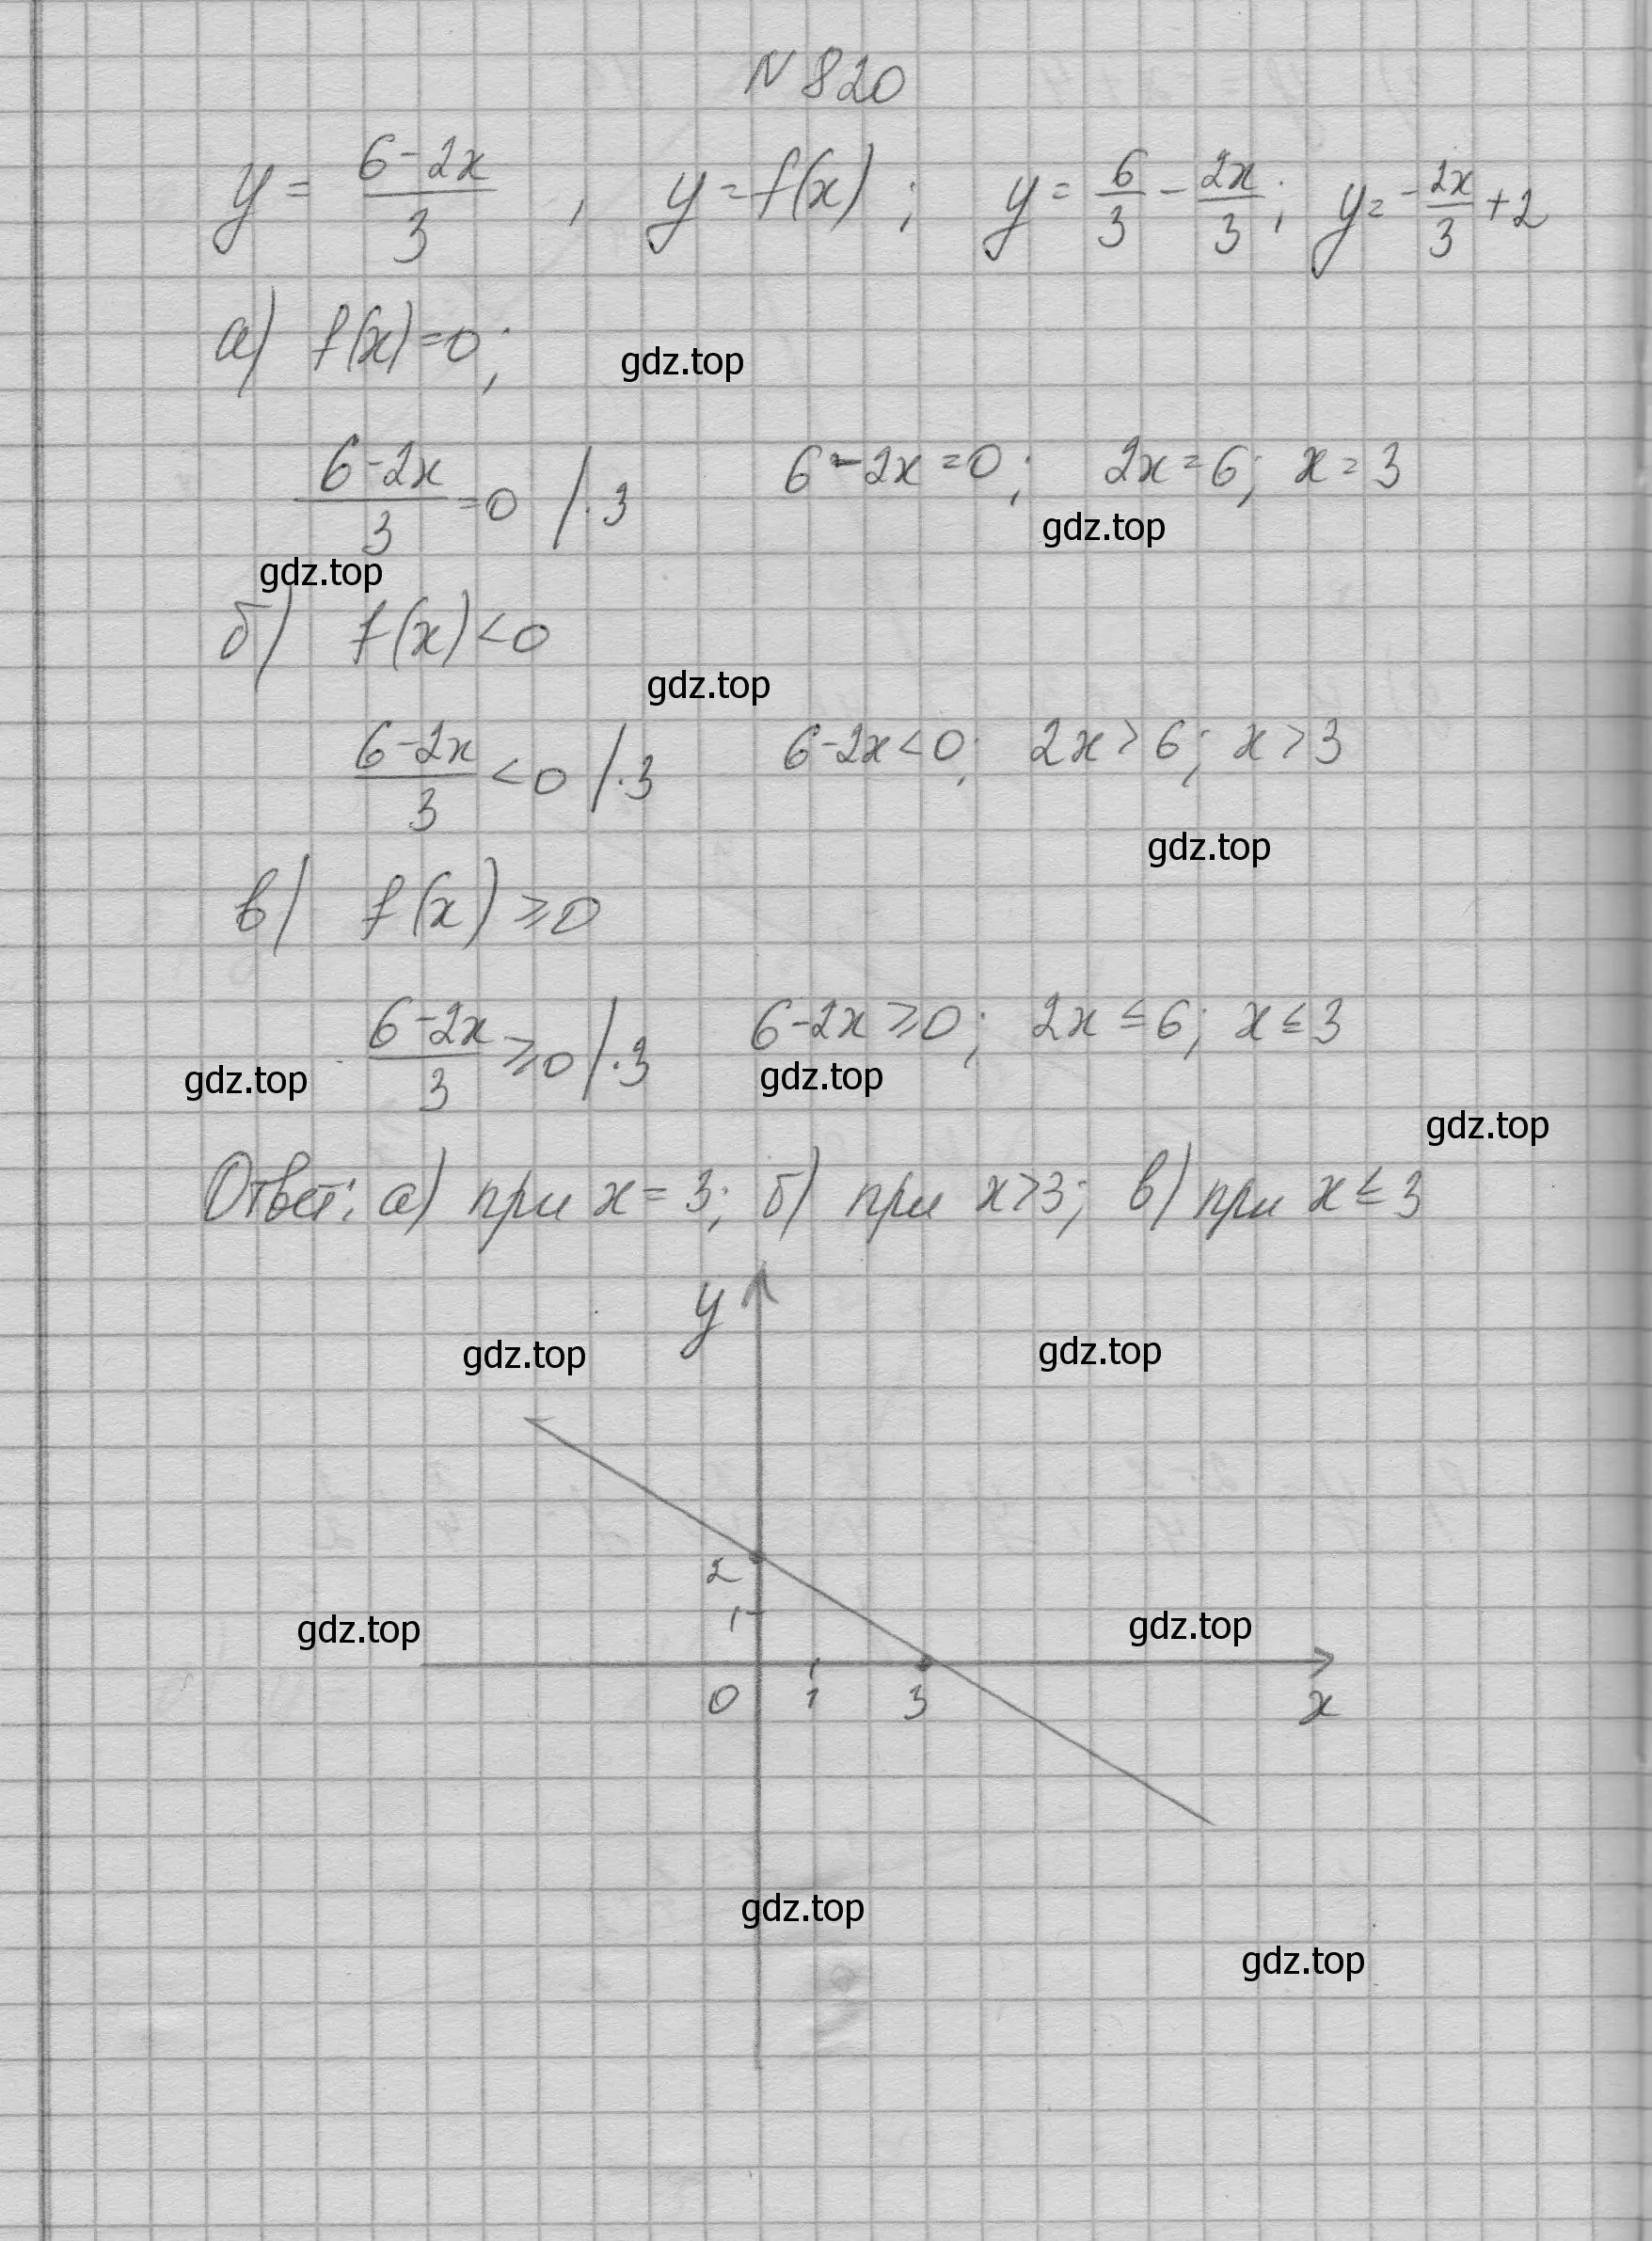 N 820
y = \frac{6-2x}{3} , y = f(x) ; y = \frac{6}{3} - \frac{2x}{3}; y = -\frac{2x}{3} + 2
а) f(x)=0;
gdz.top
\frac{6-2x}{3} = 0 / · 3 6-2x=0; 2x=6; x=3
gdz.top
gdz.top
б) f(x)<0
gdz.top
\frac{6-2x}{3} < 0 / · 3 6-2x<0; 2x>6; x>3
gdz.top
в) f(x) ⩾ 0
\frac{6-2x}{3} ⩾ 0 / · 3 6-2x ⩾ 0; 2x ≤ 6; x ≤ 3
gdz.top gdz.top
gdz.top
Ответ: а) при x = 3; б) при x>3; в) при x ≤ 3
y
gdz.top gdz.top
2
1
gdz.top gdz.top
0 1 3 x
gdz.top
gdz.top